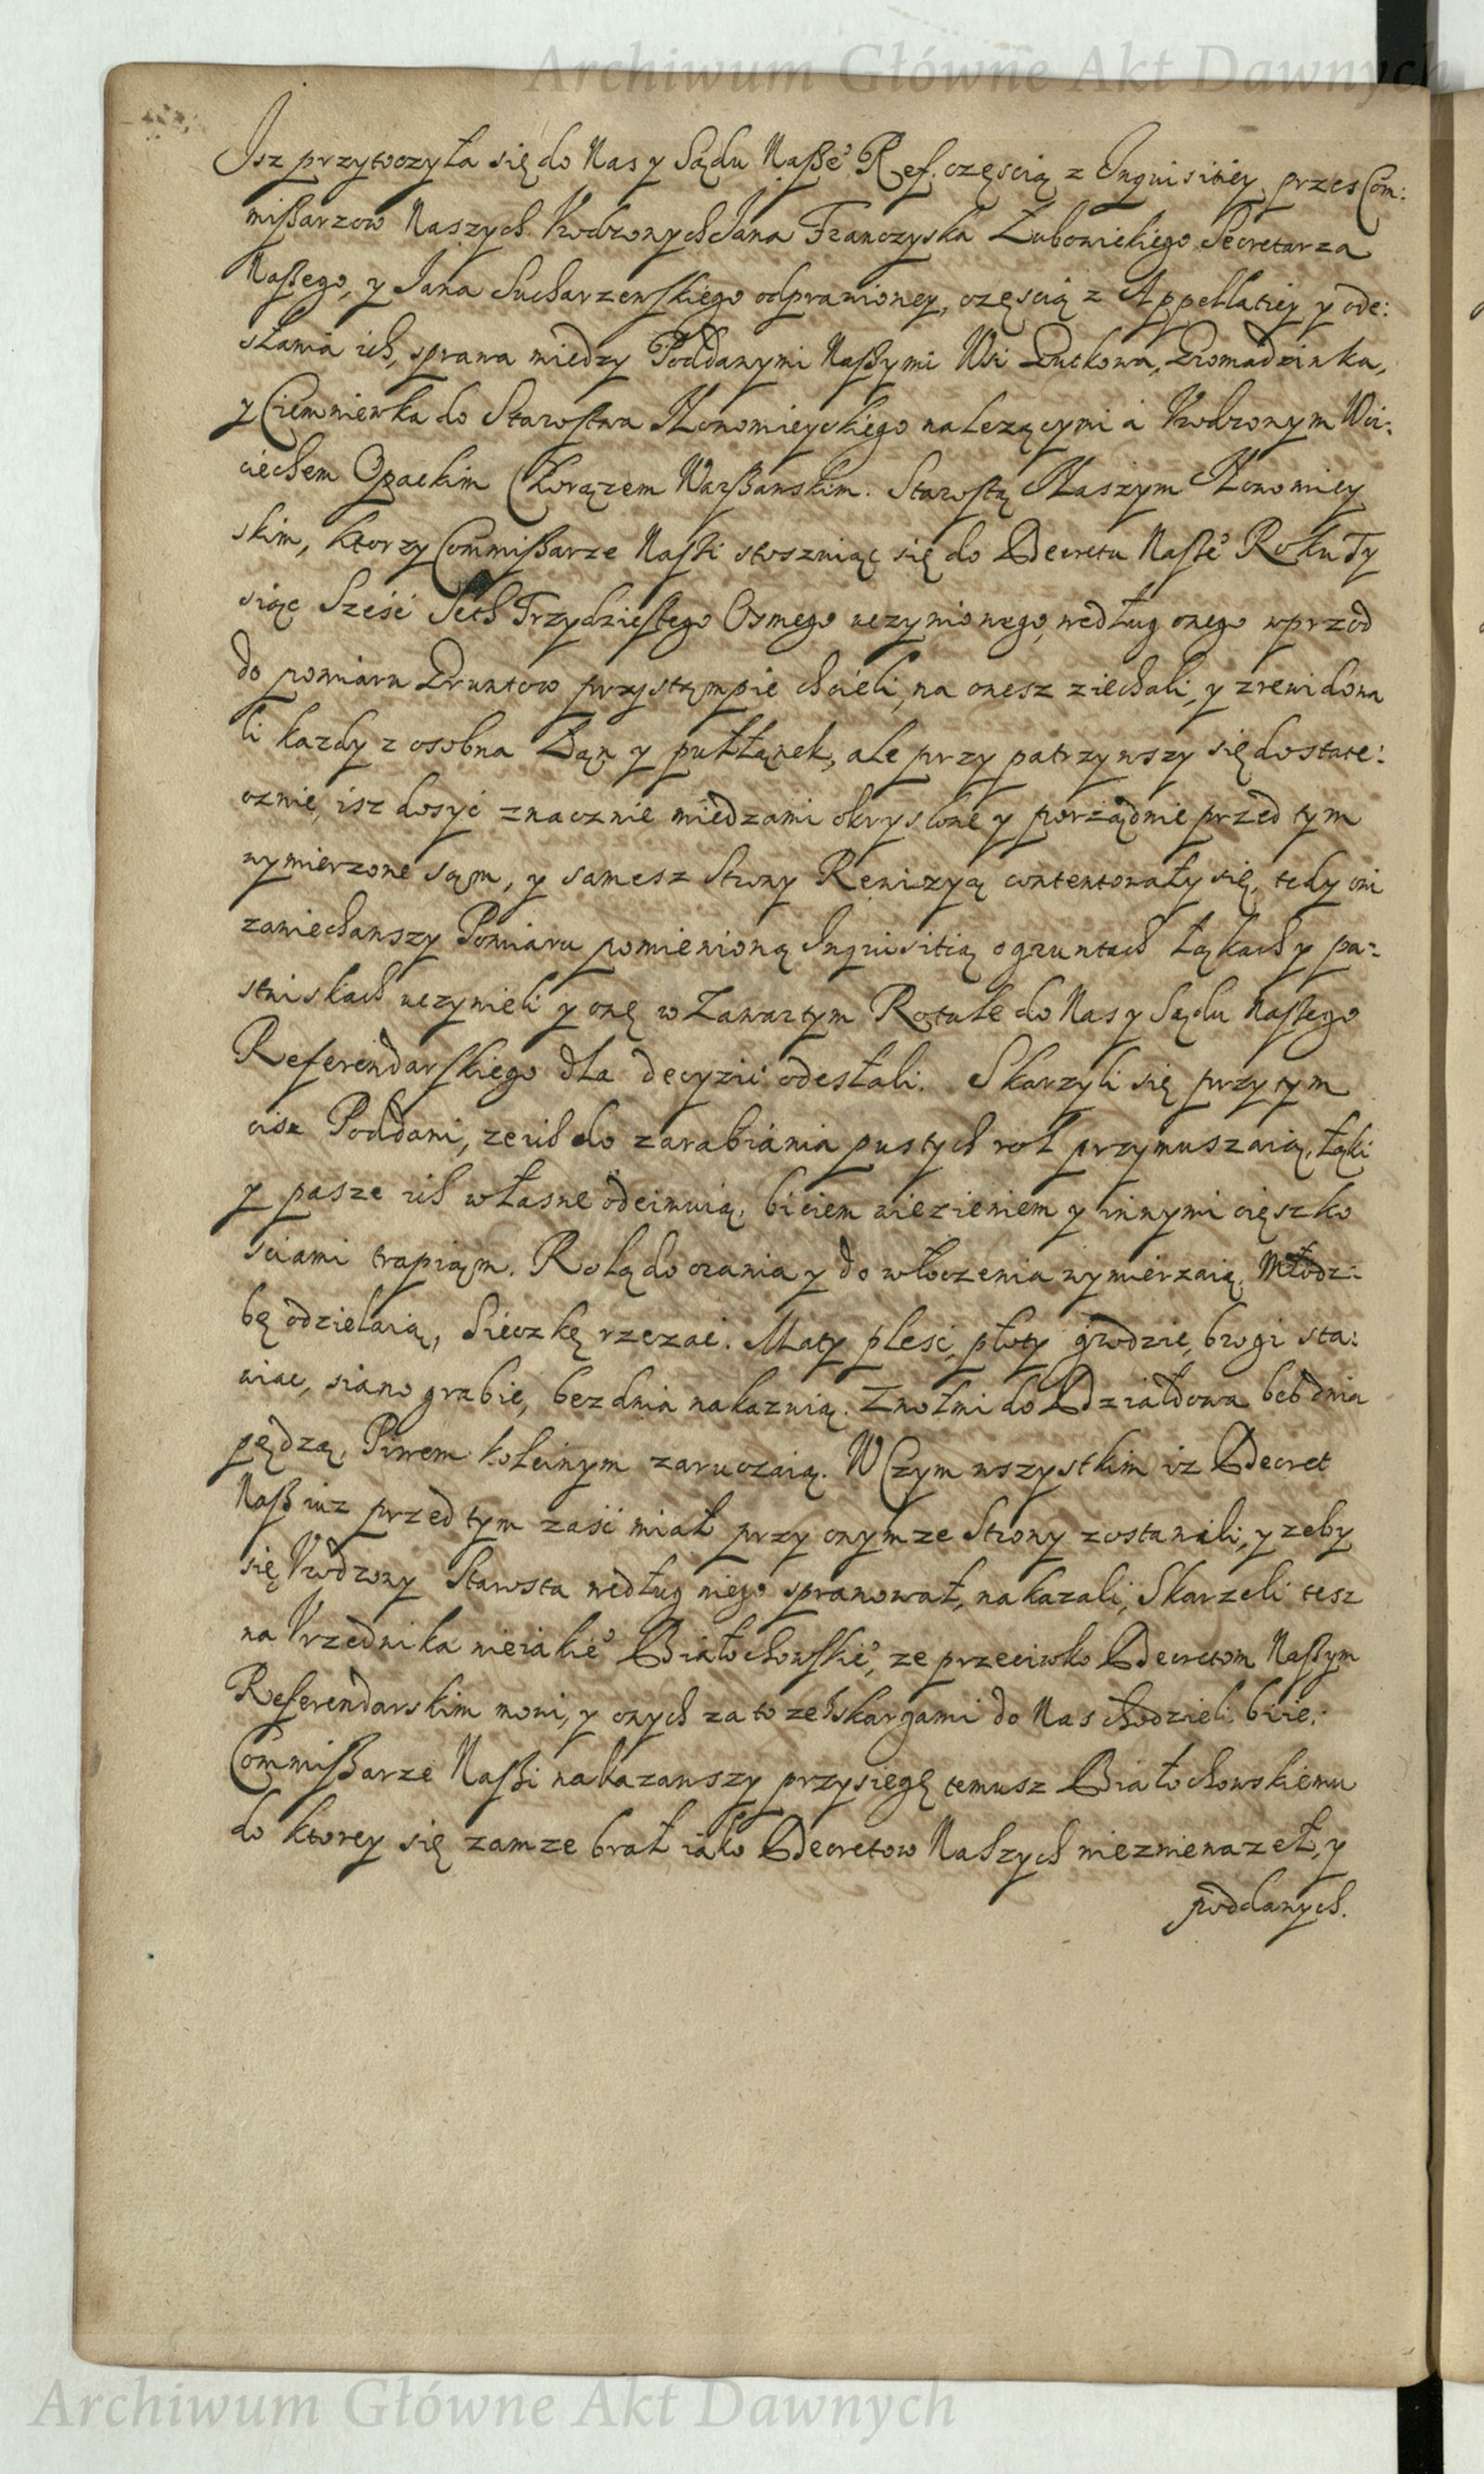 Archiwum Główne Akt Dawnych
Isz przytoczyła się do Nas y Sądu Naßeº Ref. częscią z Inquisitiey przes Com:
mißarzow Naszych Vrodzonych Jana Franczyska Lubowickiego Secretarza
Naßego, y Jana Sucharzewskiego odprawioney, częscią z Appellatiey y ode:
słania ich, sprawa miedzy Poddanymi Naßymi Wsi Gutkowa, Gromadzinka,
y Ciemniewka do Starostwa Nowomieyskiego nalezącymi a Vrodzonym Woi:
ciechem Opackim Chorązem Warßawskim. Starostą Naszym Nowomiey
skim, ktorzy Commißarze Naßi stosuiąc się do Decretu Naßeº Roku Ty
siąc Szesc Seth Trzydziestego Osmego uczynionego, według onego wprzod
do pomiaru Gruntow przystąmpic chcieli, na onesz ziechali, y zrewidowa
li kazdy z osobna Łan y pułłanek, ale przypatrzywszy się dostate:
cznie, isz dosyć znacznie miedzami okryslone y porządnie przed tym
wymierzone sąm, y samesz Strony Rewizyą contentowały się, tedy oni
zaniechawszy Pomiaru pomienioną Inquisitią o gruntach łąkach y pa:
stwiskach uczynieli y onę w Zawartym Rotule do Nas y Sądu Naßego
Referendarskiego dla decyzii odesłali. Skarzyli się przy tym
cisz Poddani, ze ich do zarabiania pustych rol przymuszaią, łąki
y pasze ich własne odeimuią, biciem więzieniem y innymi cięszko
sciami trapiąm. Rolą do orania y do włoczenia wymierzaią, Młodz:
bę odzielaią, Sieczkę rzezac. Maty plesc, płoty grodzic, brogi sta:
wiac, siano grabic, bez dnia nakazuią. Zwołmi do Działdowa beb dnia
pędzą, Piwem kolcinym zaruczaią. W Czym wszystkim iz Decret
Naß iuz przed tym zaść miał przy onymze Strony zostawili, y zeby
się Vrodzony Starosta według niego sprawował, nakazali, Skarzeli tesz
na Vrzednika nieiakieº Białochowskieº, ze przeciwko Decretom Naßym
Referendarskim mowi, y onych za to ze skargami do Nas chodzieli biie.
Commißarze Naßi nakazawszy przysięgę temusz Białochowskiemu
do ktorey się zamze brał iako Decretow Naszych niezniewazeł, y
poddanych.
Archiwum Główne Akt Dawnych